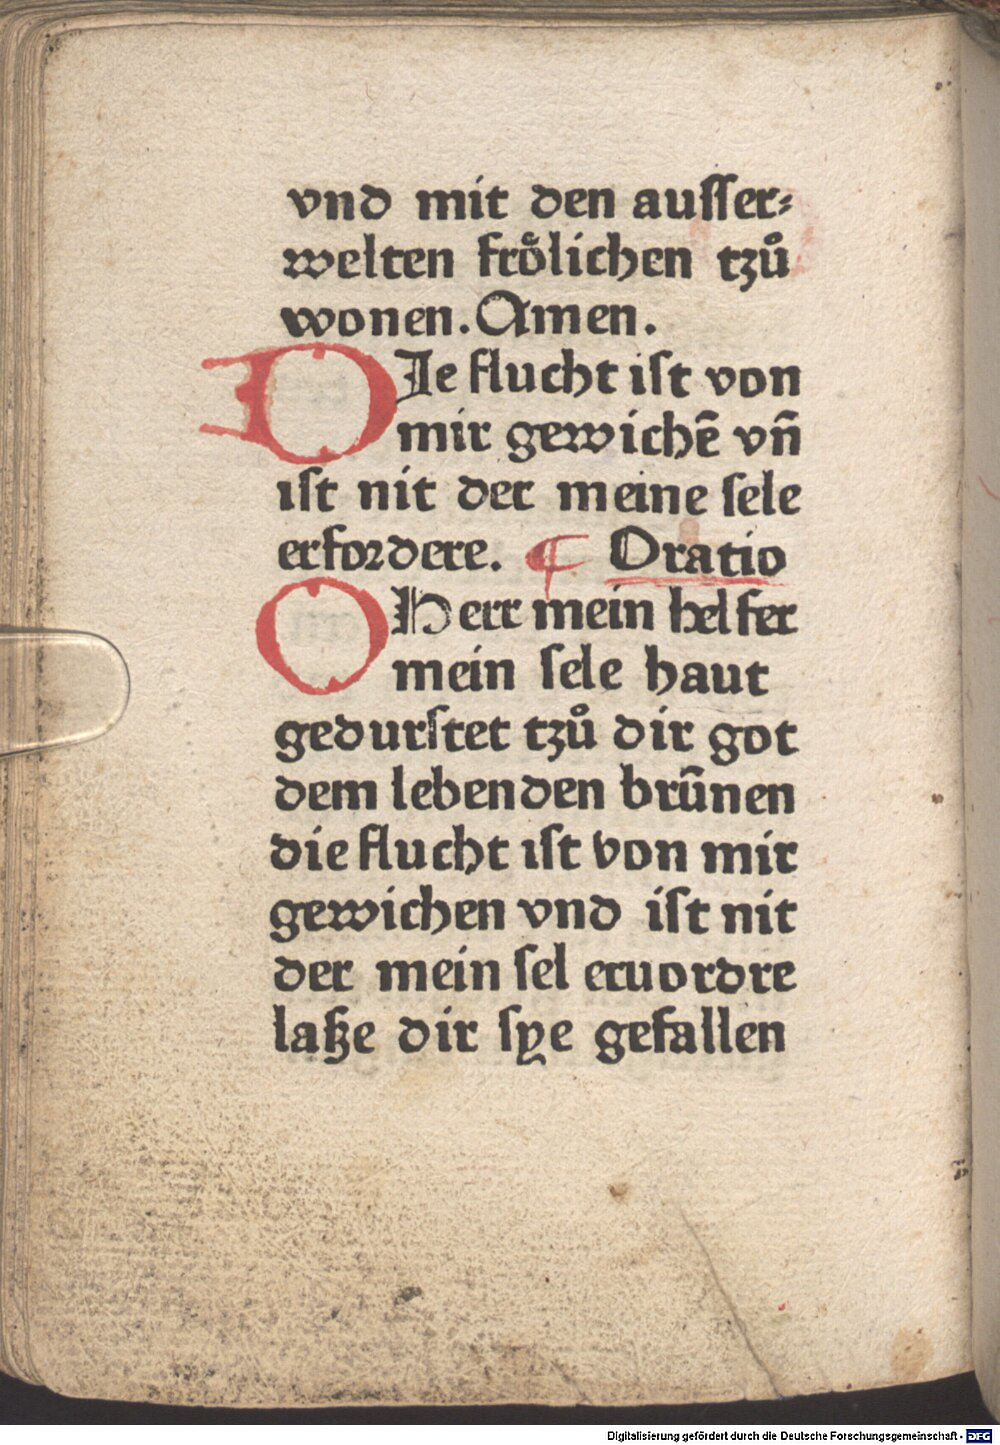 vnd mit den auſſer⸗
welten froͤlichen tzuͦ
wonen. Amen.
DIe flucht iſt von
mir gewichē vn̄
iſt nit der meine ſele
erfordere. ¶ Oratio
O Herr mein helfer
mein ſele haut
gedurſtet tzuͦ dir got
dem lebenden brūnen
die flucht iſt von mir
gewichen vnd iſt nit
der mein ſel eruordre
laſze dir ſye gefallen
Digitalisierung gefördert durch die Deutsche Forschungsgemeinschaft - DFG